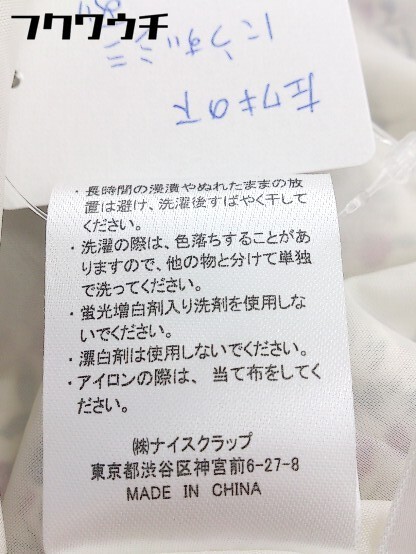 フクウウチ
左ワキの下
にうすいシミ
あり
・長時間の浸漬やぬれたままの放
置は避け、洗濯後すばやく干して
ください。
・洗濯の際は、色落ちすることがあ
りますので、他の物と分けて単独
で洗ってください。
・蛍光増白剤入り洗剤を使用しな
いでください。
・漂白剤は使用しないでください。
・アイロンの際は、当て布をしてく
ださい。
㈱ナイスクラップ
東京都渋谷区神宮前6-27-8
MADE IN CHINA